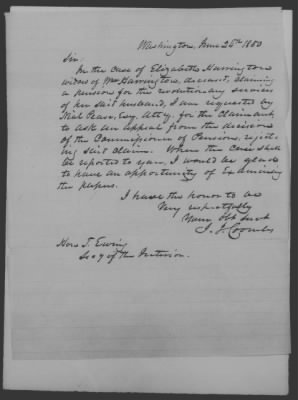 Washington, June 24th 1850
Sir
In the case of Elizabeth Harrington
widow of Wm Harrington, deceased, claiming
a pension for the revolutionary services
of her said husband, I am requested by
Neal Pease, Esq. Atty. for the Claimant
to ask an appeal from the decision
of the Commissioner of Pensions, reject-
ing said claim. When the case shall
be reported to you, I would be glad
to have an opportunity of examining
the papers.
I have the honor to be
Very respectfully
Your Obt Servt
J. J. Coombs
Hon. T. Ewing
Secy of the Interior.